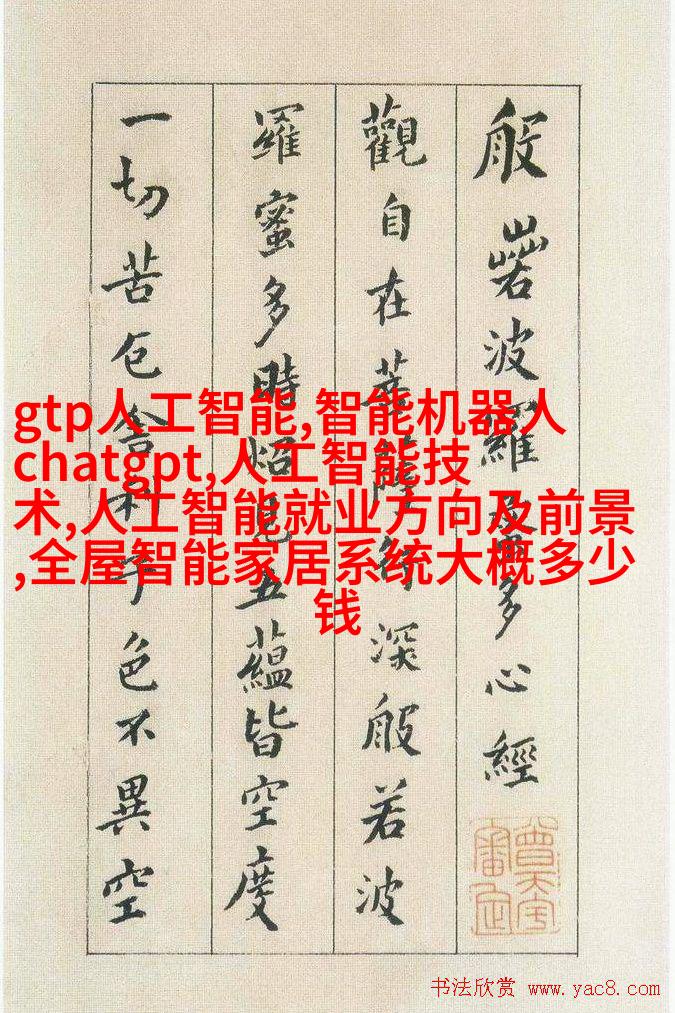 般若波羅蜜多心經
觀自在菩薩行深般若波
羅蜜多時炤見五蘊皆空度
一切苦厄舍利子色不異空
gtp人工智能,智能机器人
chatgpt,人工智能技
术,人工智能就业方向及前景
,全屋智能家居系统大概多少
钱
书法欣赏 www.yac8.com